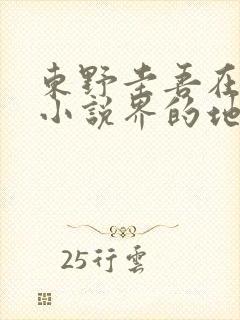 東野圭吾在
小說界的地
25行雲